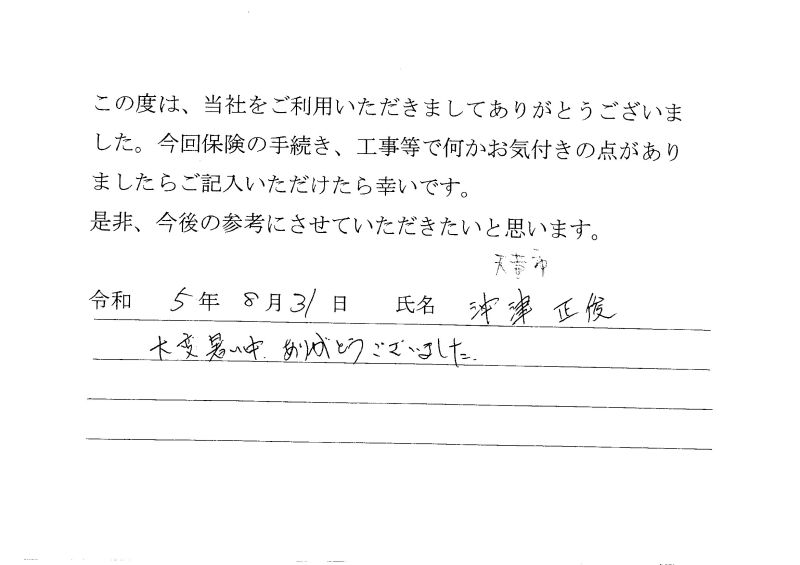 この度は、当社をご利用いただきましてありがとうございま
した。今回保険の手続き、工事等で何かお気付きの点があり
ましたらご記入いただけたら幸いです。
是非、今後の参考にさせていただきたいと思います。
天童市
令和 5年 8月31日 氏名 沖津 正俊
大変暑い中、ありがとうございました。